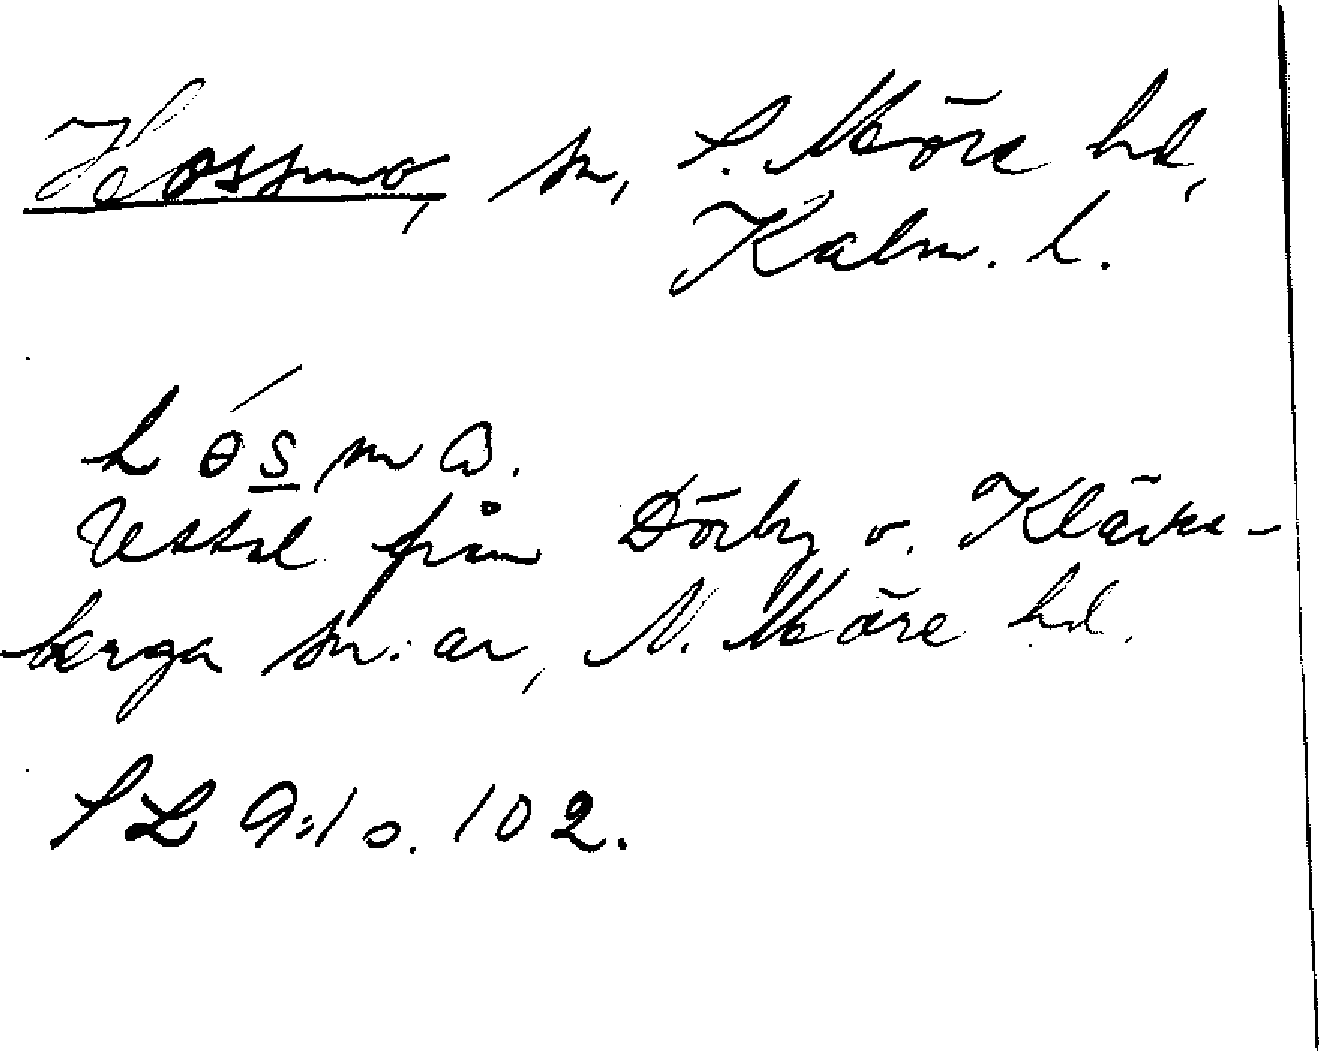 Hossmo, sn, S. Möre hd,
Kalm. l.
hɵ́s̲mɷ.
Uttal från Dörby o. Kläcke-
berga sn:ar, N. Möre hd.
SL 9:1 s. 102.